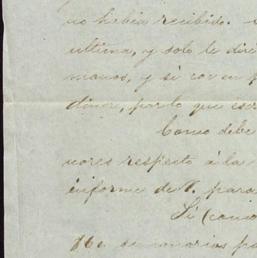 no había recibido.
ultima, y solo le dire
manos, y si con p
dinero, por lo que escr
Como debe
nores respecto á la
informe de V. para
Si (como
de varias pa